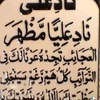 نادعلی
نَادِ عَلِيًّا مَظْهَرَ
الْعَجَائِبِ تَجِدْهُ عَوْنًا لَكَ فِي
النَّوَائِبِ كُلُّ هَمٍّ وَغَمٍّ سَيَنْجَلِي